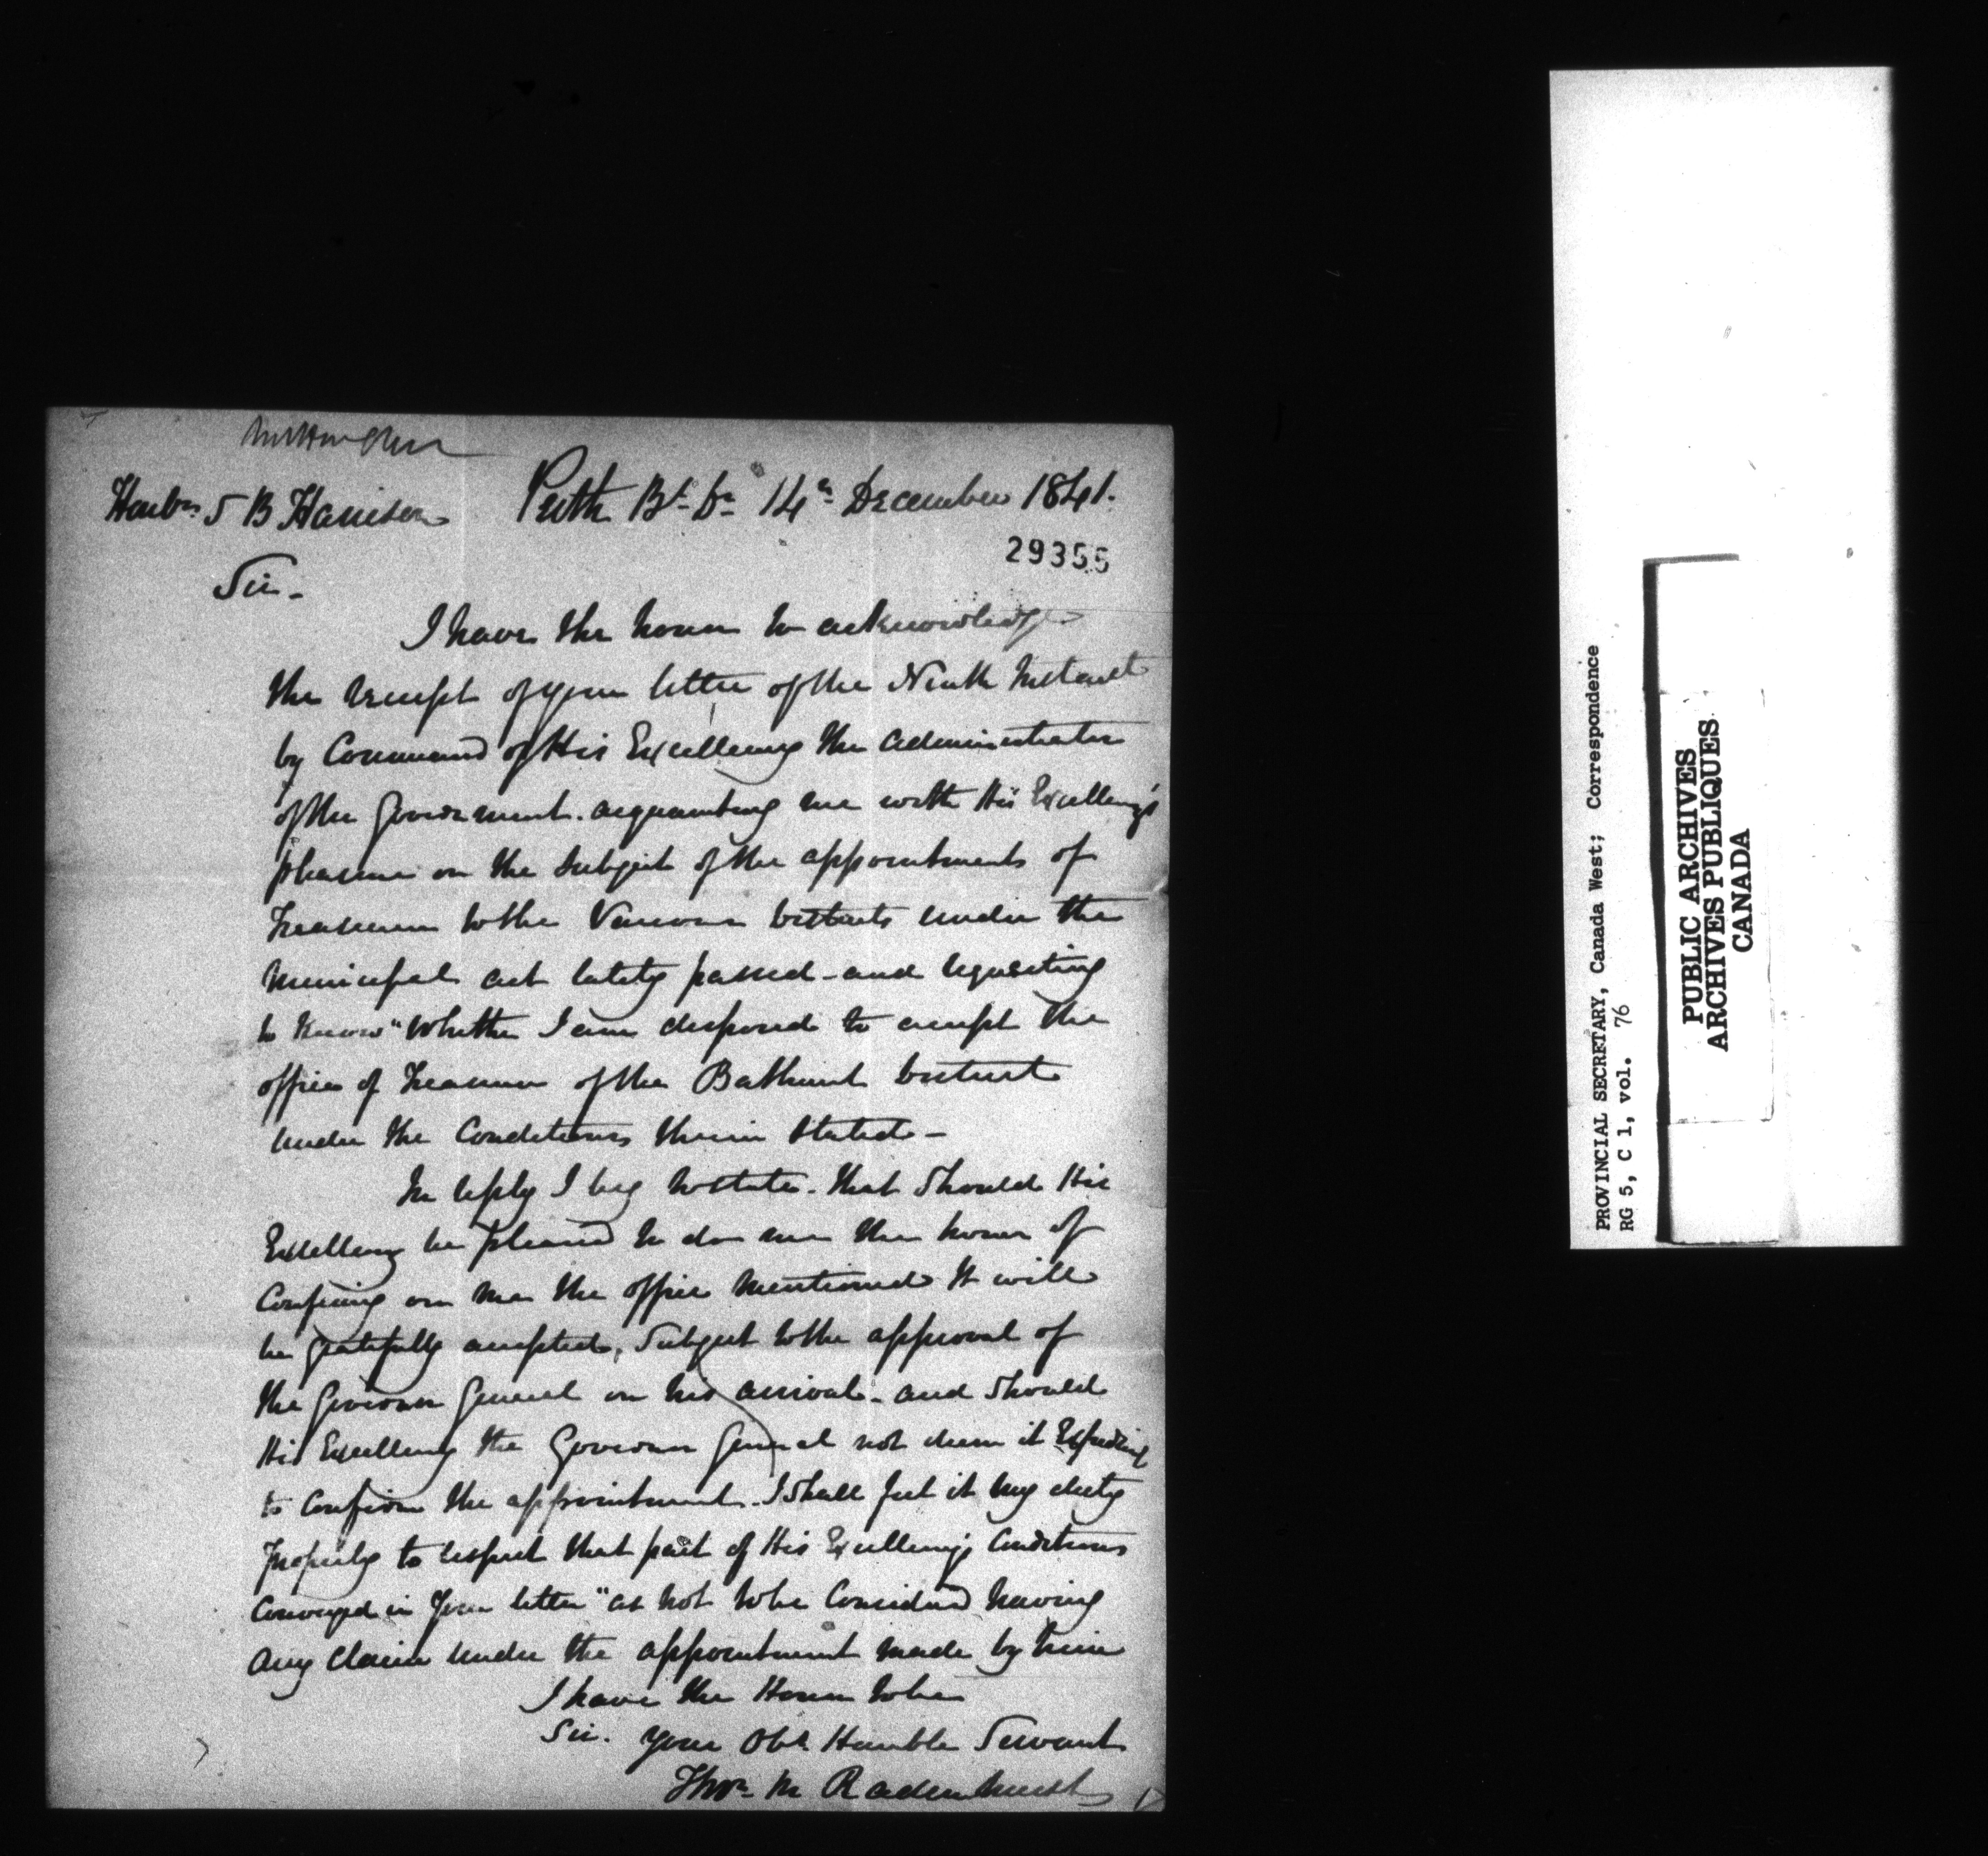 Honble S B Harrison Perth Bt Dt 14th December 1841.
29355
Sir -
I have the honor to acknowledge
the receipt of your letter of the Ninth Instant
by Command of His Excellency the administrator
of the Government. acquainting me with His Excellency's
pleasure on the subject of the appointments of
Treasurer to the Various Districts under the
Municipal act lately passed - and requesting
to know "Whether I am disposed to accept the
office of Treasurer of the Bathurst District
under the Conditions therein stated -
In reply I beg to state. that should His
Excellency be pleased to do me the honor of
Confering on me the office mentioned It will
be gratefully accepted, subject to the approval of
the Governor General on his arrival - and should
His Excellency the Governor General not deem it Expedient
to Confirm the appointment. I shall feel it my duty
properly to respect that part of His Excellency's Conditions
Conveyed in your letter "as not to be Considered having
any claim under the appointment made by him
I have the Honor to be
Sir. Your Obt. Humble Servant
Thos. M Radenhurst
PROVINCIAL SECRETARY, Canada West; Correspondence
RG 5, C 1, vol. 76
PUBLIC ARCHIVES
ARCHIVES PUBLIQUES
CANADA